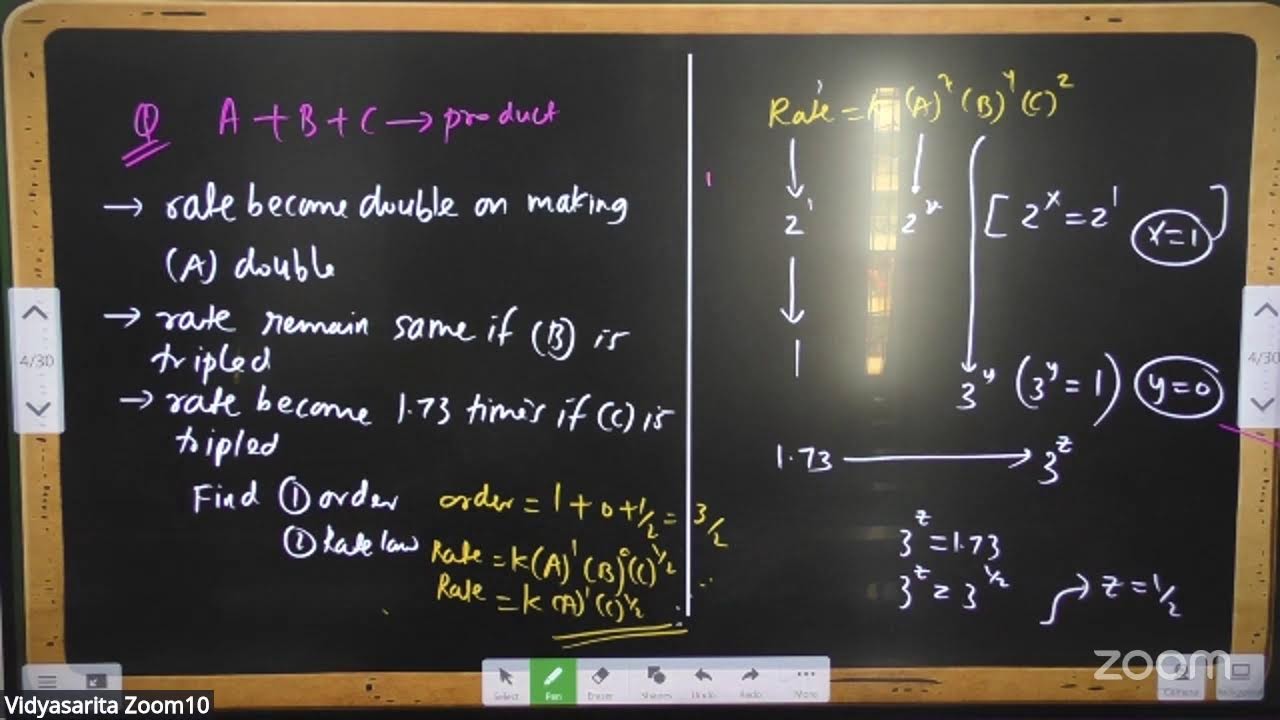 Q A + B + C → product
→ rate become double on making
(A) double
→ rate remain same if (B) is
tripled
→ rate become 1.73 times if (C) is
tripled
Find ① order
order = 1 + 0 + 1/2 = 3/2
② Rate law
Rate = k(A)¹(B)⁰(C)^1/2
Rate = k(A)¹(C)^1/2
Rate = k (A)^x (B)^y (C)^z
2¹ 2^x [2^x = 2¹ x=1]
1 3^y (3^y = 1) y=0
1.73 → 3^z
3^z = 1.73
3^z = 3^1/2 → z = 1/2
4/30
4/30
Select
Pen
Eraser
Shapes
Undo
Redo
More
zoom
Vidyasarita Zoom10